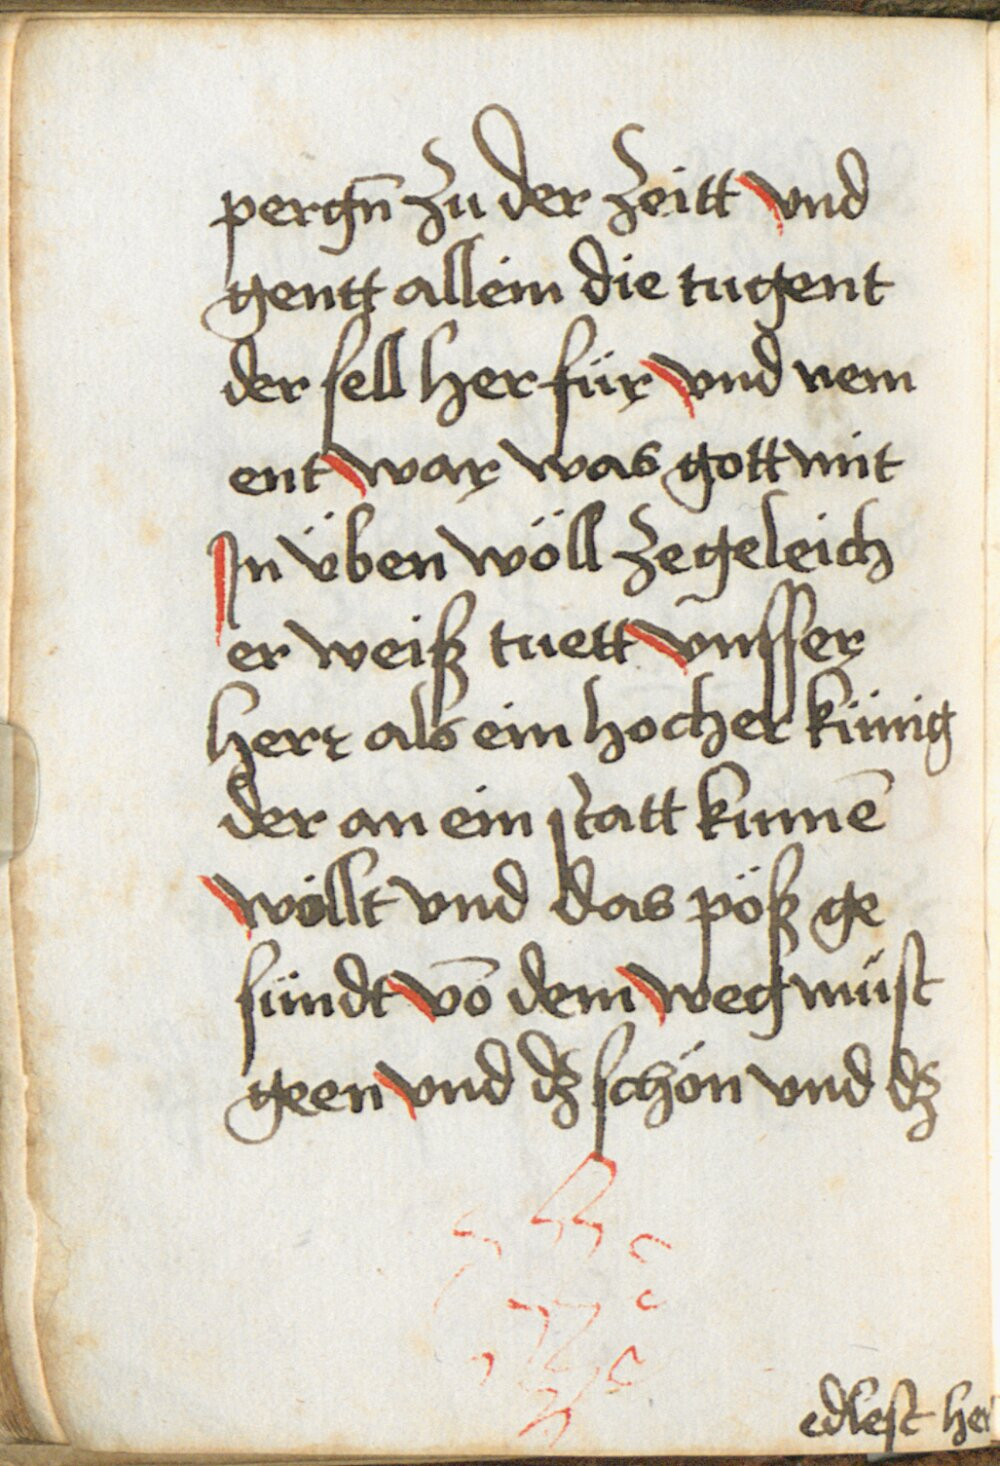 pergn̄ zu der zeitt vnd
gentt allein die tugent
der sell her für vnd nem
ent war was gott mit
In üben wöll zegeleich
er weiß tuett vnsser
herr als ein hocher künig
der an ein statt kumē
wöllt vnd das pöß ge
sündt vō dem weg müst
geen vnd dz schön vnd dz
edlest her